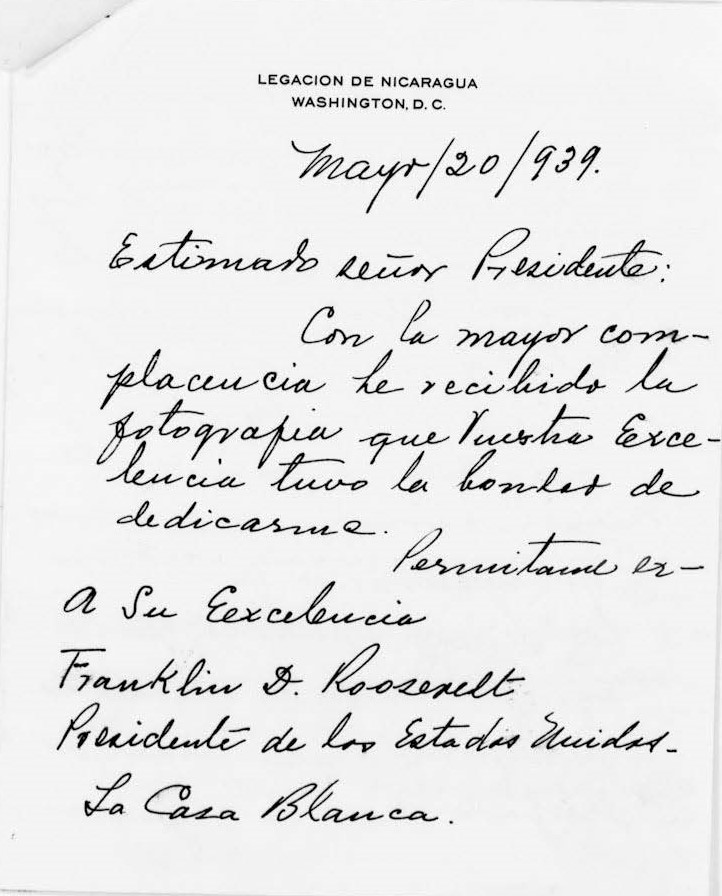 LEGACION DE NICARAGUA
WASHINGTON, D. C.
Mayo/20/939.
Estimado señor Presidente:
Con la mayor com-
placencia he recibido la
fotografia que Vuestra Exce-
lencia tuvo la bondad de
dedicarme.
Permitame ex-
A Su Eexcelencia
Franklin D. Roosevelt
Presidente de los Estados Unidos-
La Casa Blanca.